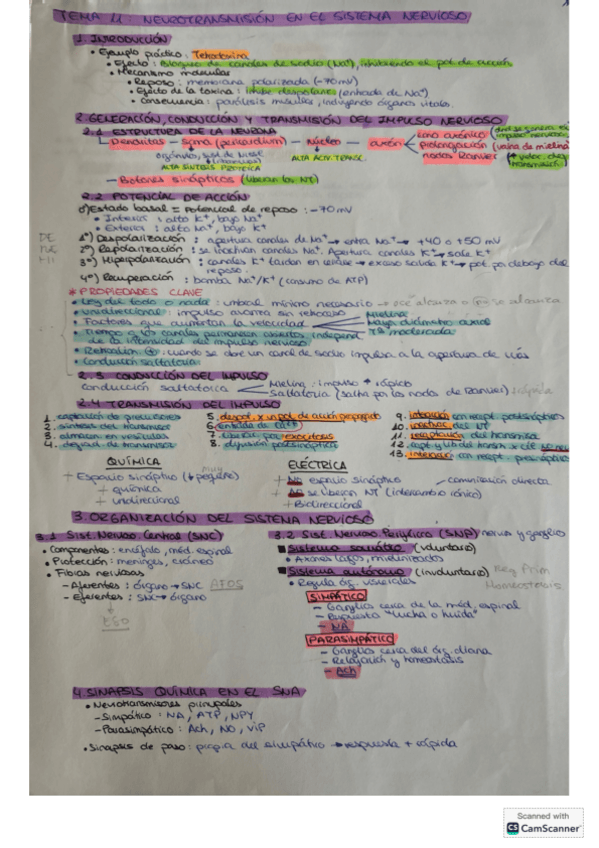 TEMA 11: NEUROTRANSMISIÓN EN EL SISTEMA NERVIOSO
1. INTRODUCCIÓN
• Ejemplo práctico: Tetrodoxina
• Efecto: Bloqueo de canales de sodio (Na+), inhibiendo el pot. de acción
• Mecanismo molecular
• Reposo: membrana polarizada (-70 mV)
• Efecto de la toxina: inhibe despolariz. (entrada de Na+)
• Consecuencia: parálisis muscular, incluyendo órganos vitales.
2. GENERACIÓN, CONDUCCIÓN Y TRANSMISIÓN DEL IMPULSO NERVIOSO
2.1 ESTRUCTURA DE LA NEURONA
Dendritas – Soma (pericardium) – Núcleo – axón
cono axónico (
impulso nervioso)
prolongación (vaina de mielina)
nodos Ranvier (↑ veloc. de transmisión)
orgánulos, sust. de Nissl
ALTA SÍNTESIS PROTEICA
ALTA ACTIV.
– Botones sinápticos (liberan los NT)
2.2 POTENCIAL DE ACCIÓN
0) Estado basal = Potencial de reposo: -70 mV
• Interior: alto K+, bajo Na+
• Exterior: alto Na+, bajo K+
1º) Despolarización: apertura canales de Na+ → entra Na+ → +40 o +50 mV
2º) Repolarización: se inactivan canales Na+. Apertura canales K+ → sale K+
3º) Hiperpolarización: canales K+ tardan en cerrarse → exceso salida K+ → pot. por debajo del reposo.
4º) Recuperación: bomba Na+/K+ (consumo de ATP)
DE
* PROPIEDADES CLAVE
• Ley del todo o nada: umbral mínimo necesario → o se alcanza o no se alcanza
• Unidireccional: impulso avanza sin retroceso
• Factores que aumentan la velocidad
Mielina
Mayor diámetro axonal
Tª moderada
• Tiempo q los canales permanecen abiertos independ. de la intensidad del impulso nervioso
• Retroalim ⊕: cuando se abre un canal de sodio impulsa a la apertura de más
• Conducción saltatoria
2.3 CONDUCCIÓN DEL IMPULSO
Conducción saltatoria
Mielina: impulso + rápido
Saltatoria (salta por los nodos de Ranvier) rápida
2.4 TRANSMISIÓN DEL IMPULSO
1. captación de precursores
2. síntesis del transmisor
3. almacen. en vesículas
4. degrad. de transmisor
5. despol. x un pot. de acción propagado
6. entrada de Ca2+
7. liberac. por exocitosis
8. difusión postsináptica
9. interacción con recept. postsinápticos
10. inactivac. del NT
11. recaptación del transmisor
13. interacción con recept. presinápticos
QUÍMICA
+ Espacio sináptico (↓ pequeño) muy
+ química
+ unidireccional
ELÉCTRICA
+ NO espacio sináptico – comunicación directa
+ NO se liberan NT (intercambio iónico)
+ Bidireccional
3. ORGANIZACIÓN DEL SISTEMA NERVIOSO
3.1 Sist. Nervioso Central (SNC)
• Componentes: encéfalo, méd. espinal
• Protección: meninges, cráneo
• Fibras nerviosas
– Aferentes: órgano → SNC
– Eferentes: SNC → órgano
3.2 Sist. Nervioso Periférico (SNP) nervios y ganglios
■ Sistema somático (voluntario)
• Axones largos, mielinizados
■ Sistema autónomo (involuntario)
• Regula órg. viscerales
Homeostasis
SIMPÁTICO
– Ganglios cerca de la méd. espinal
– Respuesta "lucha o huida"
– NA
PARASIMPÁTICO
– Ganglios cerca del órg. diana
– Relajación y homeostasis
– Ach
4. SINAPSIS QUÍMICA EN EL SNA
• Neurotransmisores principales
– Simpático: NA, ATP, NPY
– Parasimpático: Ach, NO, VIP
• Sinapsis de paso: propia del simpático → respuesta + rápida
Scanned with
CS CamScanner